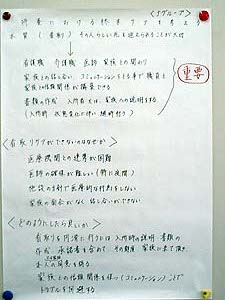 (Jグループ)
終末における終末ケアを考える
本質（看取り）その人らしい死を迎えられることが大切
看護職 介護職 医師 家族との関わり
家族との話し合い、コミュニケーションをとる事で職員と
家族との信頼関係が構築できる
書類の作成 入所者又は、家族への説明をする
(入所時 状態変化に伴い随時行う)
重要
<看取りケアができないのはなぜか>
医療機関との連携が困難
医師の確保が難しい（特に夜間）
施設の方針で医療的な行為をしない
家族の面会がなく話し合いができない
<どのようにしたら良いか>
看取りを円滑に行うには 入所時の説明 書類の
作成 承諾書を含めて その都度 家族に来て頂き
本人の意思を
家族との信頼関係を保つ（コミュニケーション）ことで
トラブルを回避する